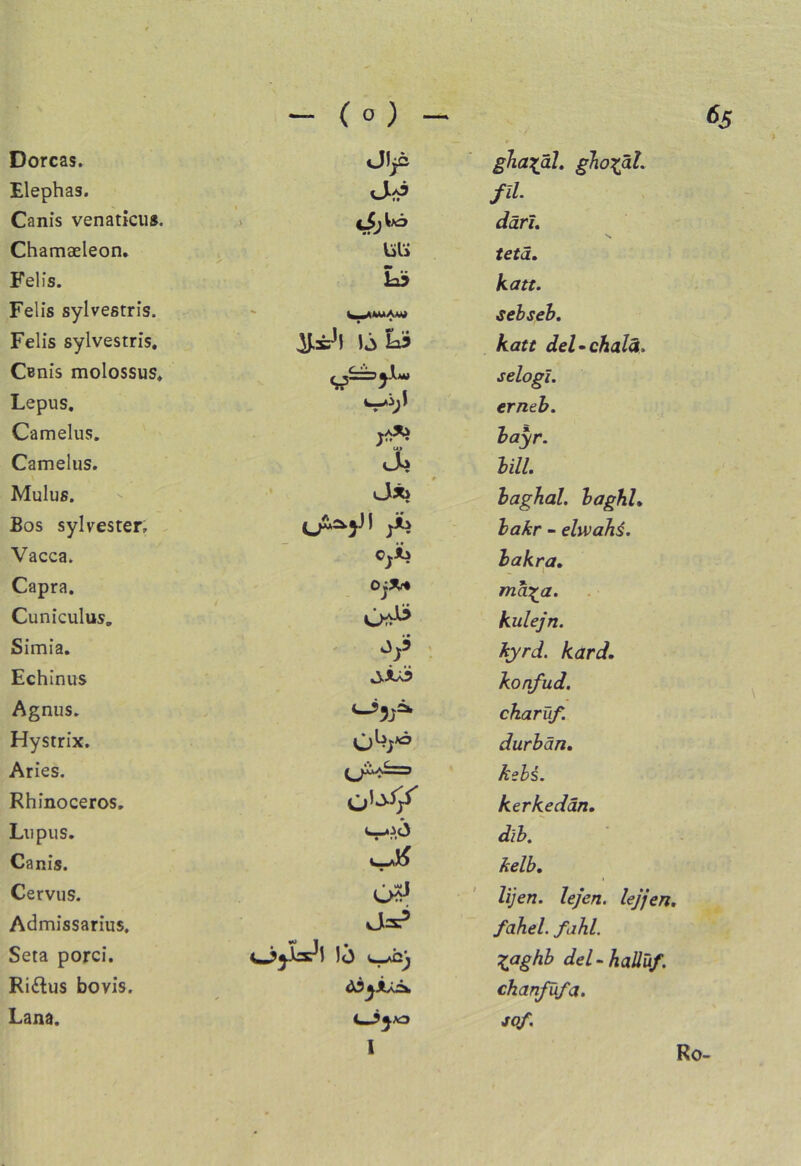 — ( o ) — 65
Dorcas. غزال ghaʒal. ghoʒāl.
Elephas. فيل fīl.
Canis venaticus. ضاري dārī.
Chamæleon. تاتا tetā.
Felis. قط katt.
Felis sylvestris. سبسب sebseb.
Felis sylvestris. قط ذا الخلا katt del-chalā.
Cɛnis molossus. سلوكي selogī.
Lepus. ارنب erneb.
Camelus. بعير bayr.
Camelus. بل bill.
Mulus. بغل baghal. baghl.
Bos sylvester. بقر الوحش bakr - elwahś.
Vacca. بقرة bakra.
Capra. معزة māʒa.
Cuniculus. قلين kulejn.
Simia. قرد kyrd. kard.
Echinus قنفد konfud.
Agnus. خروف charūf.
Hystrix. ضربان durbān.
Aries. كبش kebś.
Rhinoceros. كركدان kerkedān.
Lupus. ذيب dīb.
Canis. كلب kelb.
Cervus. لين lijen. lejen. lejjen.
Admissarius. فحل fahel. fahl.
Seta porci. زغب ذا الحلوف ʒaghb del-hallūf.
Rictus bovis. خنفوفة chanfūfa.
Lana. صوف sof.
I Ro-